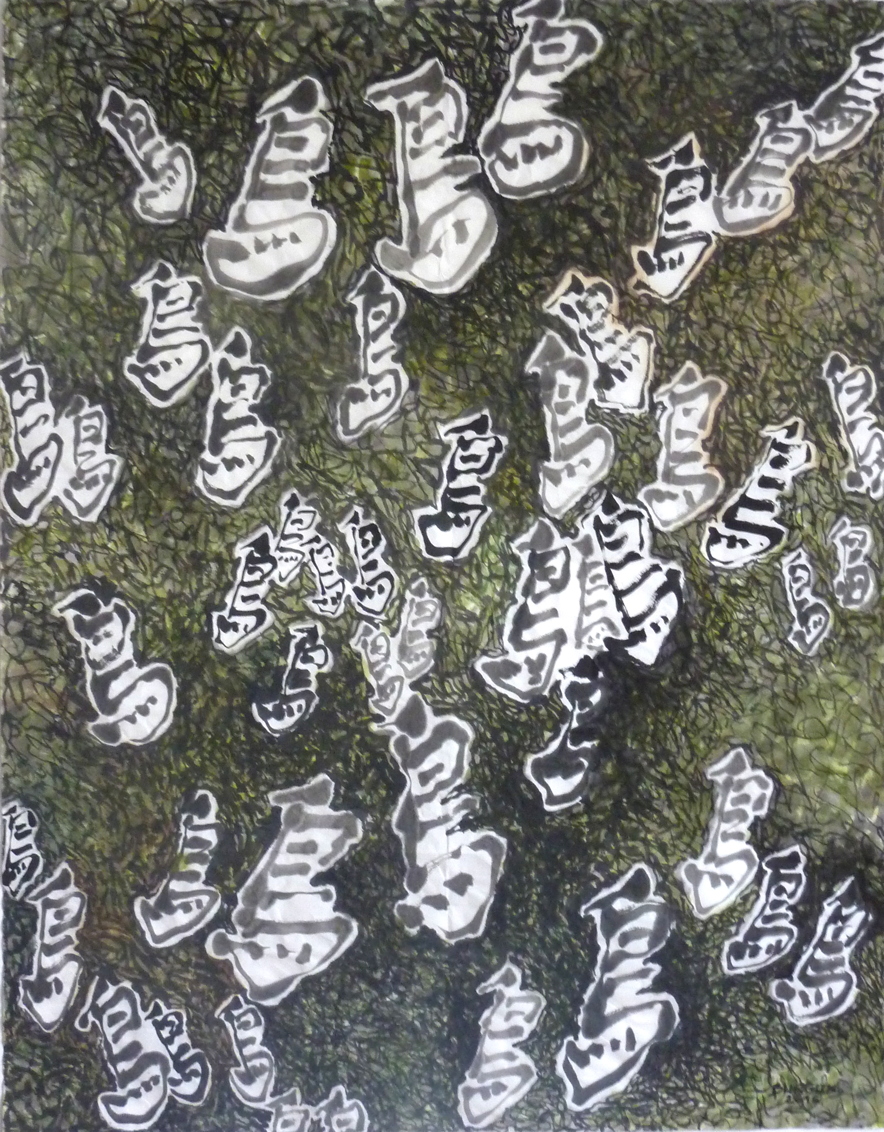 鳥
鳥 鳥 鳥 鳥 鳥 鳥
鳥 鳥 鳥
鳥 鳥 鳥 鳥 鳥 鳥
鳥 鳥 鳥
鳥 鳥 鳥 鳥 鳥 鳥 鳥 鳥 鳥
鳥 鳥 鳥 鳥 鳥
鳥 鳥 鳥 鳥 鳥
鳥 鳥 鳥 鳥
鳥 鳥 鳥 鳥